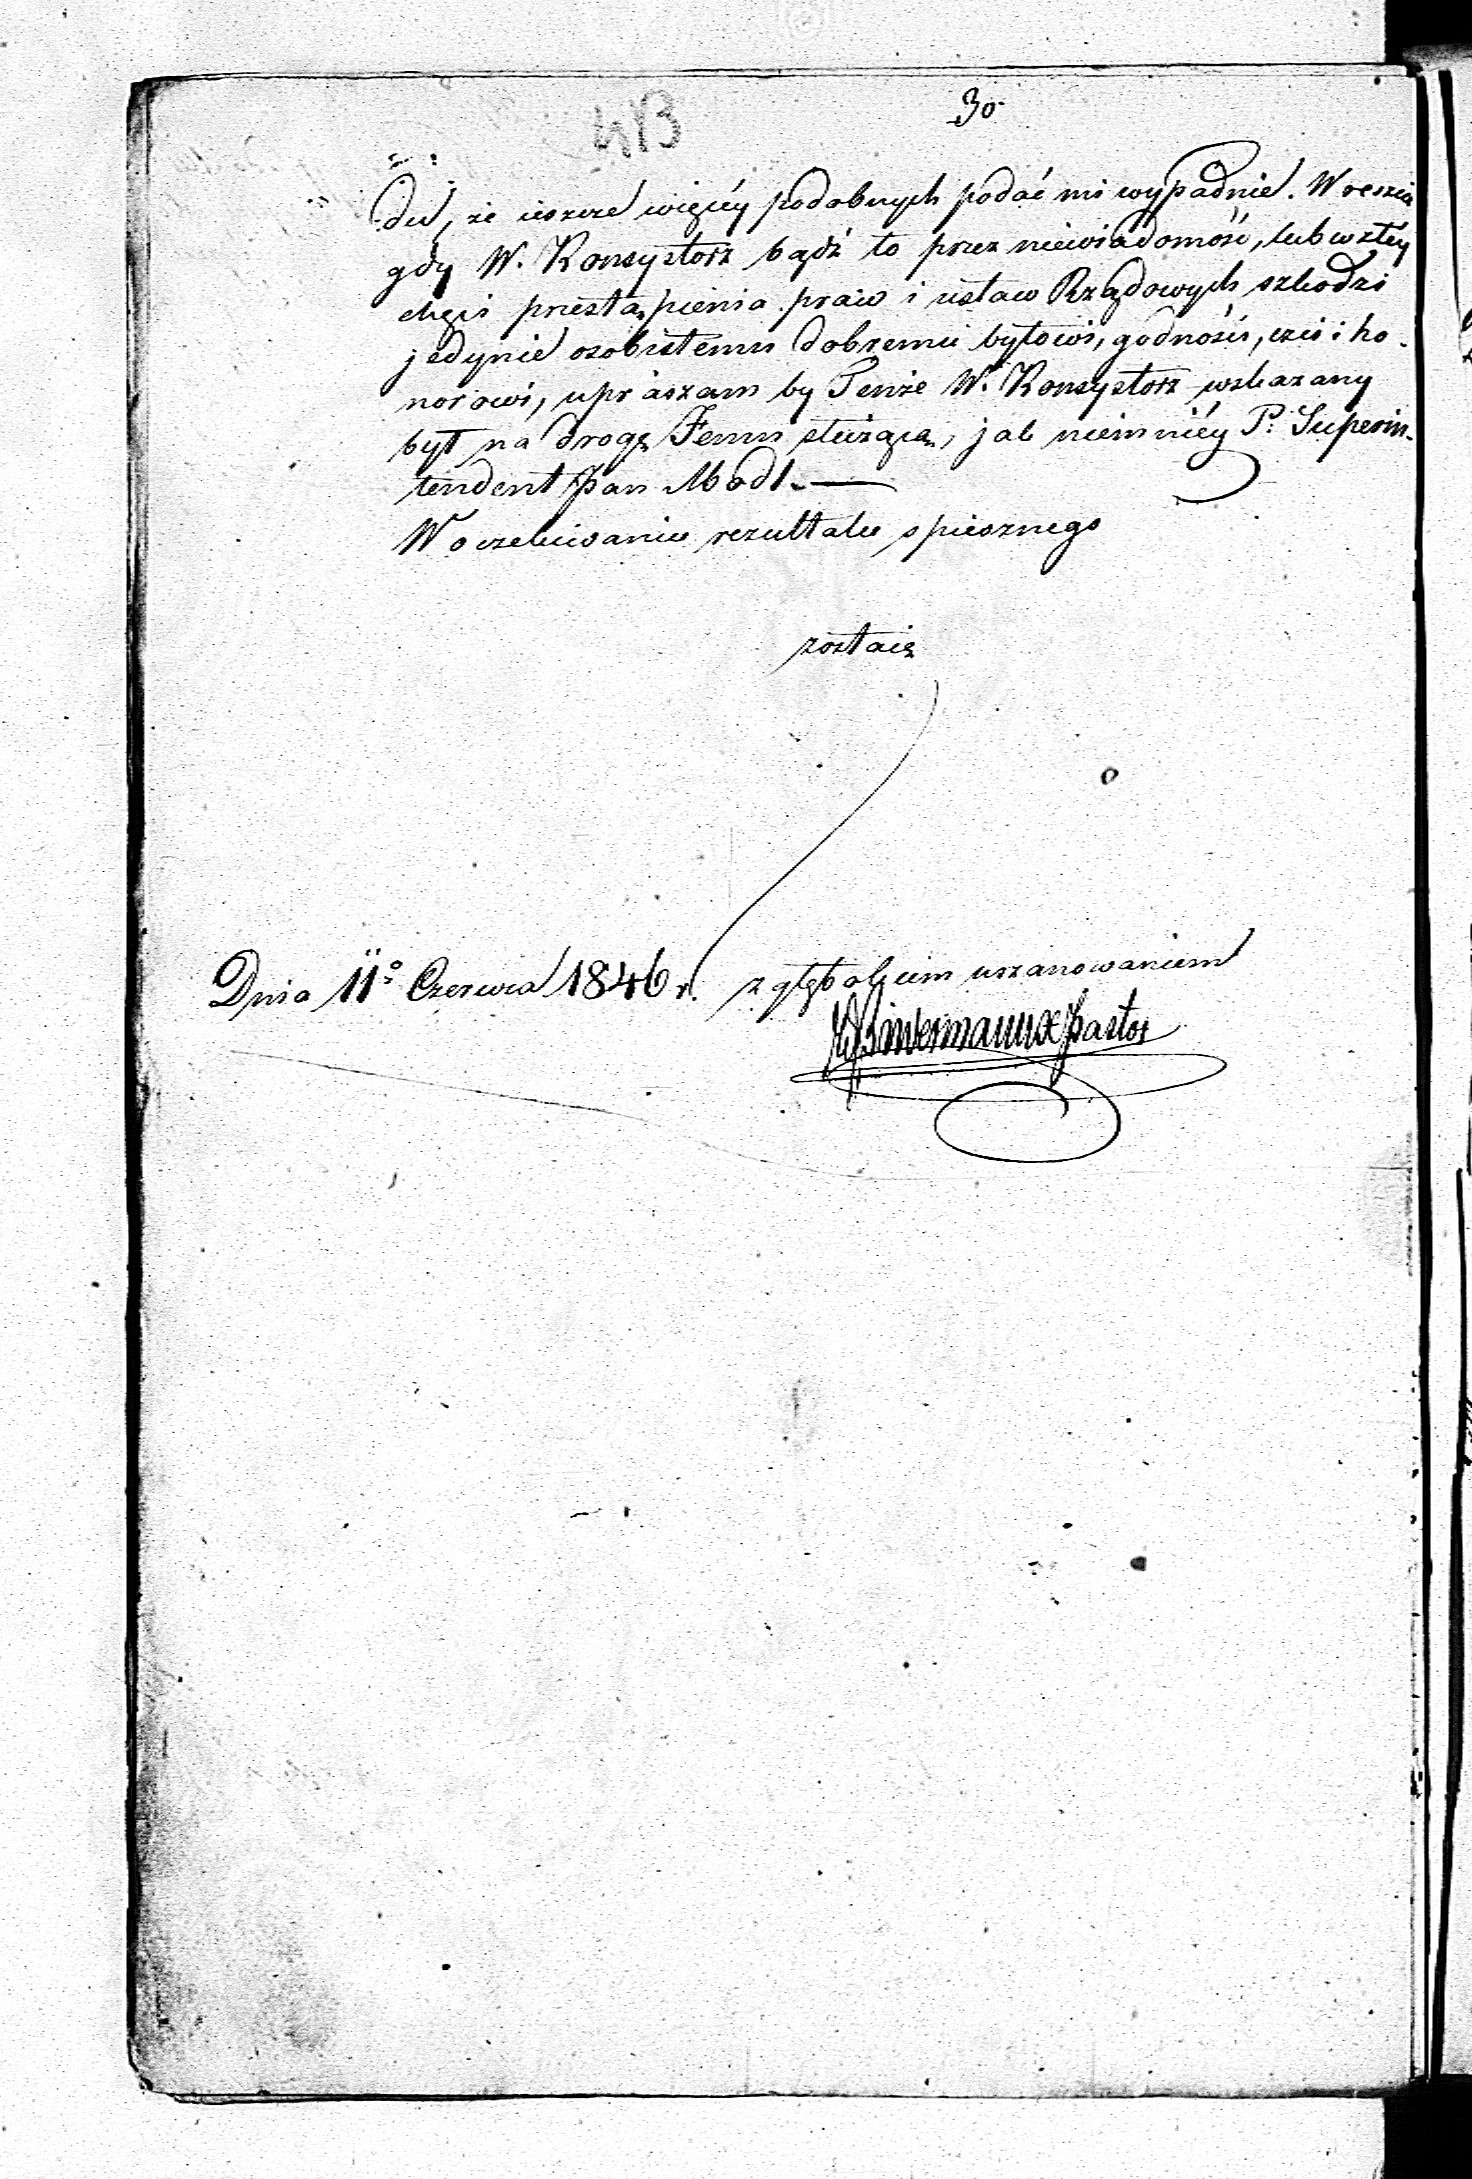 30
413
du, że ieszcze więcéy podobnych podać mi wypadnie. Wreszcie
gdy W. Konsystorz bądź to przez niewiadomość, lub w złéy
chęci przestąpienia praw i ustaw Rządowych szkodzi
jedynie osobistemu dobremu bytowi, godności, czci i ho-
norowi, upraszam by Tenże W. Konsystorz wskazany
był na drogę Jemu służącą, jak niemniéy P. Superin-
tendent Pan Modl.
W oczekiwaniu rezultatu spiesznego
zostaię
Dnia 11º Czerwca 1846 r. z głębokiem uszanowaniem
Pastor